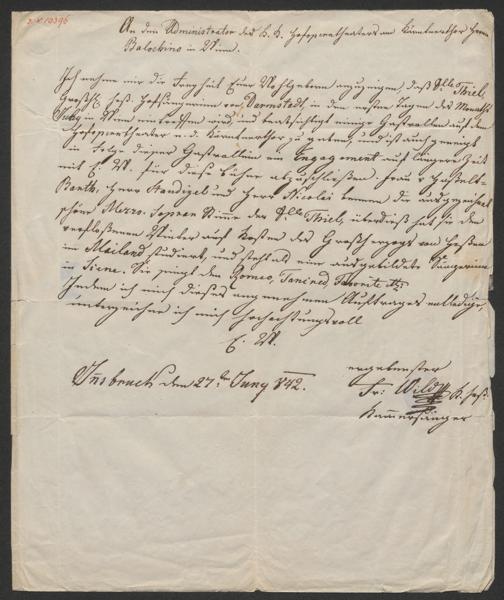 An den Administrator des k. k. Hofoperntheaters am Kärnthnerthor Herrn
Balochino in Wien.
Ich nehme mir die Freyheit Euer Wohlgeboren anzuzeigen, daß Dlle Thiel,
Großh. Hess. Hofsängerinn von Darmstadt, in den ersten Tagen des Monaths
July in Wien eintreffen wird, und beabsichtigt einige Gastrollen auf dem
Hofoperntheater n. d. Kärnthnerthor zu geben, und ist auch geneigt
in Folge dieser Gastrollen ein Engagement auf längere Zeit
mit E. W. für diese Bühne abzuschließen. Frau v. Hasselt-
Barth, Herr Staudigel und Herr Nicolai kennen die ausgezeichnet
schöne Mezzo-Sopran Stimme der Dlle Thiel, überdieß hat sie den
verflossenen Winter auf Kosten des Großherzogs von Hessen
in Mailand studiert, und steht als eine ausgebildete Sängerinn
in Sie singt den Romeo, Tancred, Favorite etz:
Indem ich mich dieses angenehmen Auftrages entledige,
unterzeichne ich mich hochachtungsvoll
E. W.
ergebenster
Insbruck den 27ten Juny 842.
Fr: Wild K. Hof.
Kammersänger